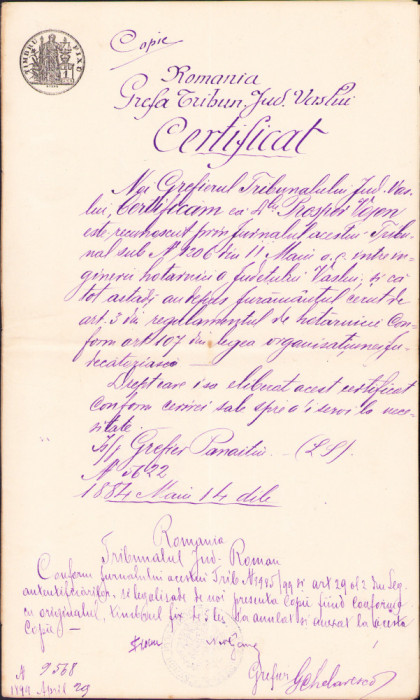 TIMBRU FIX
Copie
Romania
Grefa Tribun. Jud. Vaslui
Certificat
Noi Grefierul Tribunalului Jud. Vas-
lui, Certificam că Dlu Prosper
este recunoscut prin jurnalul acestui Tribu-
nal sub No 1206 din 11 Maiu a.c. intre in-
ginerii hotarnici a judetului Vaslui, si că
tot astadi au depus juramântul cerut de
art. 3 din regulamentul de hotărnicii Con-
form art 107 din legea organisatiunei ju-
decatoresci
Drept care i sa eliberat acest certificat
Conform cererei sale spre a'i servi la nece-
sitate.
Grefier Panaitiu (LS).
No 5622
1884 Maiu 14 dile
Romania
Tribunalul Jud. Roman
Conform jurnalului acestui Trib No 3985/99 si art 29 al 2 din Leg
autentificărilor, se legalizează de noi presenta Copie fiind conformă
cu originalul, timbrul fix de 5 lei sa anulat si anexat la acesta
Copie
Grefier
N 9568
1899 April 29